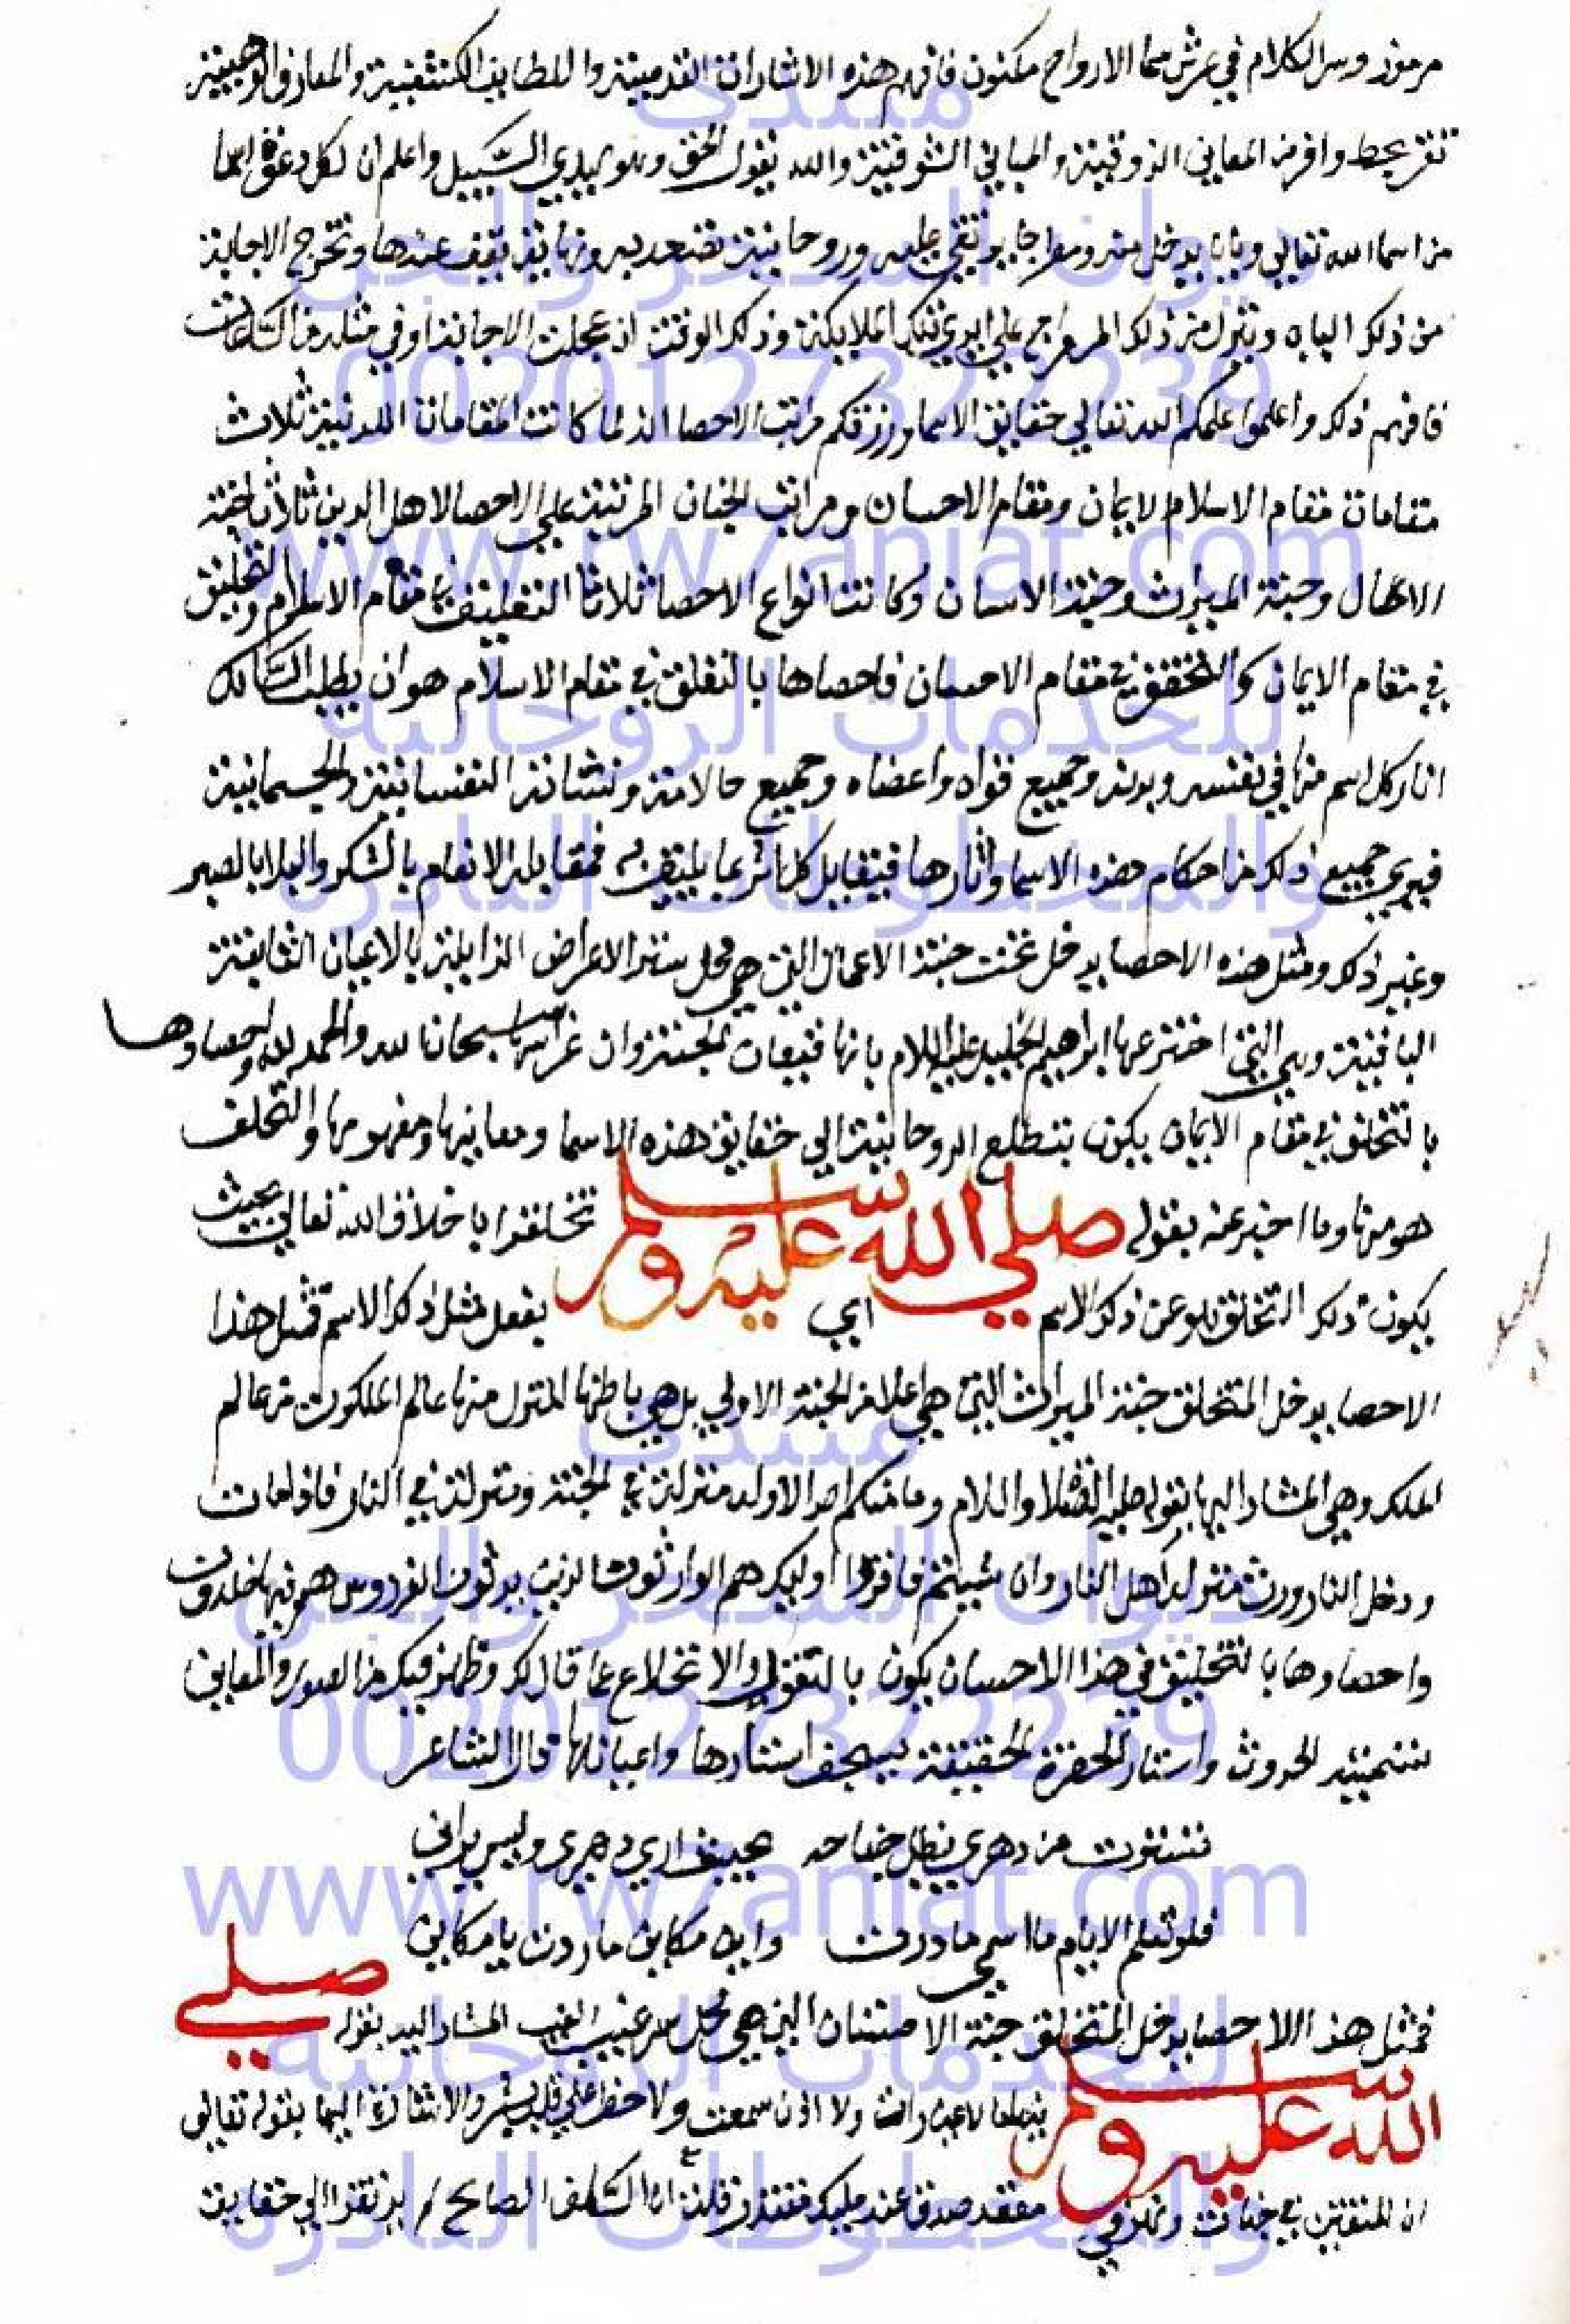 مرموز وسر الكلام في عرش سما الارواح مكنون فافهم هذه الاشارات القدسية واللطايف الكشفية والمعارف الوهبية
تفز بحظ وافر من المعاني الذوقية والمباني الشوقية والله يقول الحق وهو يهدي السبيل واعلم ان لكل دعوة اسما
من اسما الله تعالي وبابا يدخل منه ومعراجا يرتقي عليه وروحانية تصعد به ونهاية يقف عندها وتخرج الاجابة
من ذلك الباب وينزل من ذلك المعراج علي ايدي تلك الملايكة وذلك الوقت ان عجلت الاجابة او في مثله من الساعات
فافهم ذلك واعلموا علمكم الله تعالي حقايق الاسما ورزقكم مراتب الاحصا انه لما كانت المقامات الدينية ثلاث
مقامات مقام الاسلام الايمان ومقام الاحسان ومراتب الجنان المرتبة علي الاحصا لاهل الدين ثلاثا جنة
الاعمال وجنة الميراث وجنة الامتنان وكانت انواع الاحصا ثلاثا التعليق في مقام الاسلام والتخليق
في مقام الايمان والتحقق في مقام الاحسان فاحصاها بالتعلق في مقام الاسلام هو ان يطلب السالك
اثار كل اسم منها في نفسه وبدنه وجميع قواه واعضاه وجميع حالاته ونشاته النفسانية والجسمانية
فيري جميع ذلك من احكام هذه الاسما واثارها فيقابل كل اثر بما يليق به فمقابلة الانعام بالشكر والبلايا بالصبر
وغير ذلك ومثل هذه الاحصا يدخل تحت جنة الاعمال التي هي محل ستر الاعراض الزايلة بالاعيان الثابتة
الباقية وهي التي اخبر عنها ابراهيم الخليل عليه السلام بانها قيعان الجنة وان غراسها سبحان الله والحمد لله واحصاوها
بالتخلق في مقام الايمان يكون بتطلع الروحانية الي حقايق هذه الاسما ومعانيها ومفهومها والتخلق
هو منها وما اخبر عنه بقوله صلي الله عليه وسلم تخلقوا باخلاق الله تعالي بحيث
يكون ذلك التخلق هو عن ذكر الاسم اي يفعل مثل ذلك الاسم فمثل هذا
الاحصا يدخل المتخلق جنة الميراث التي هي اعلا من الجنة الاولي بل هي باطنها المتنزل منها عالم الملكوت من عالم
الملك وهي المشار اليها بقوله عليه الصلاة والسلام وما منكم احد الا وله منزلة في الجنة ومنزلة في النار فاذا مات
ودخل النار ورث منزله اهل النار وان شيتم فاقروا اوليك هم الوارثون الذين يرثون الفردوس هم فيها خالدون
واحصاوها بالتحليق في هذا الاحسان يكون بالتقوي والانخلاع عما قال لك وظهر فيك من الصور والمعاني
الحدوث واستتار الحضرة الحقيقة بسجف استارها واعيانها قال الشاعر
تسترت من دهري بظل جناحه بحيث اري دهري وليس يراني
فلو تعلم الايام ما اسمي ما درت واين مكاني ما درت يا مكاني
فمثل هذا الاحصا يدخل المتخلق جنة الامتنان التي هي محل سر غيب الغيب المشار اليه بقوله صلي
الله عليه وسلم فيها ما لا عين رات ولا اذن سمعت ولا خطر علي قلب بشر والاشارة اليها بقوله تعالي
ان المتقين في جنات ونهر في مقعد صدق عند مليك مقتدر قلت ان السلف الصالح لم يرتقوا الي حقايق